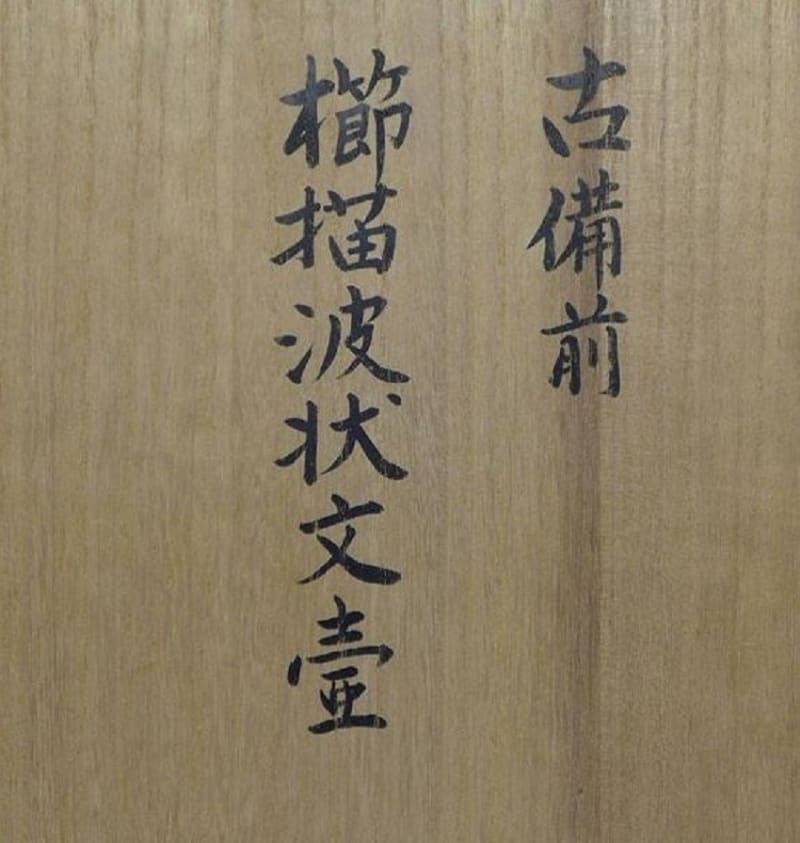 古備前
櫛描波状文壷